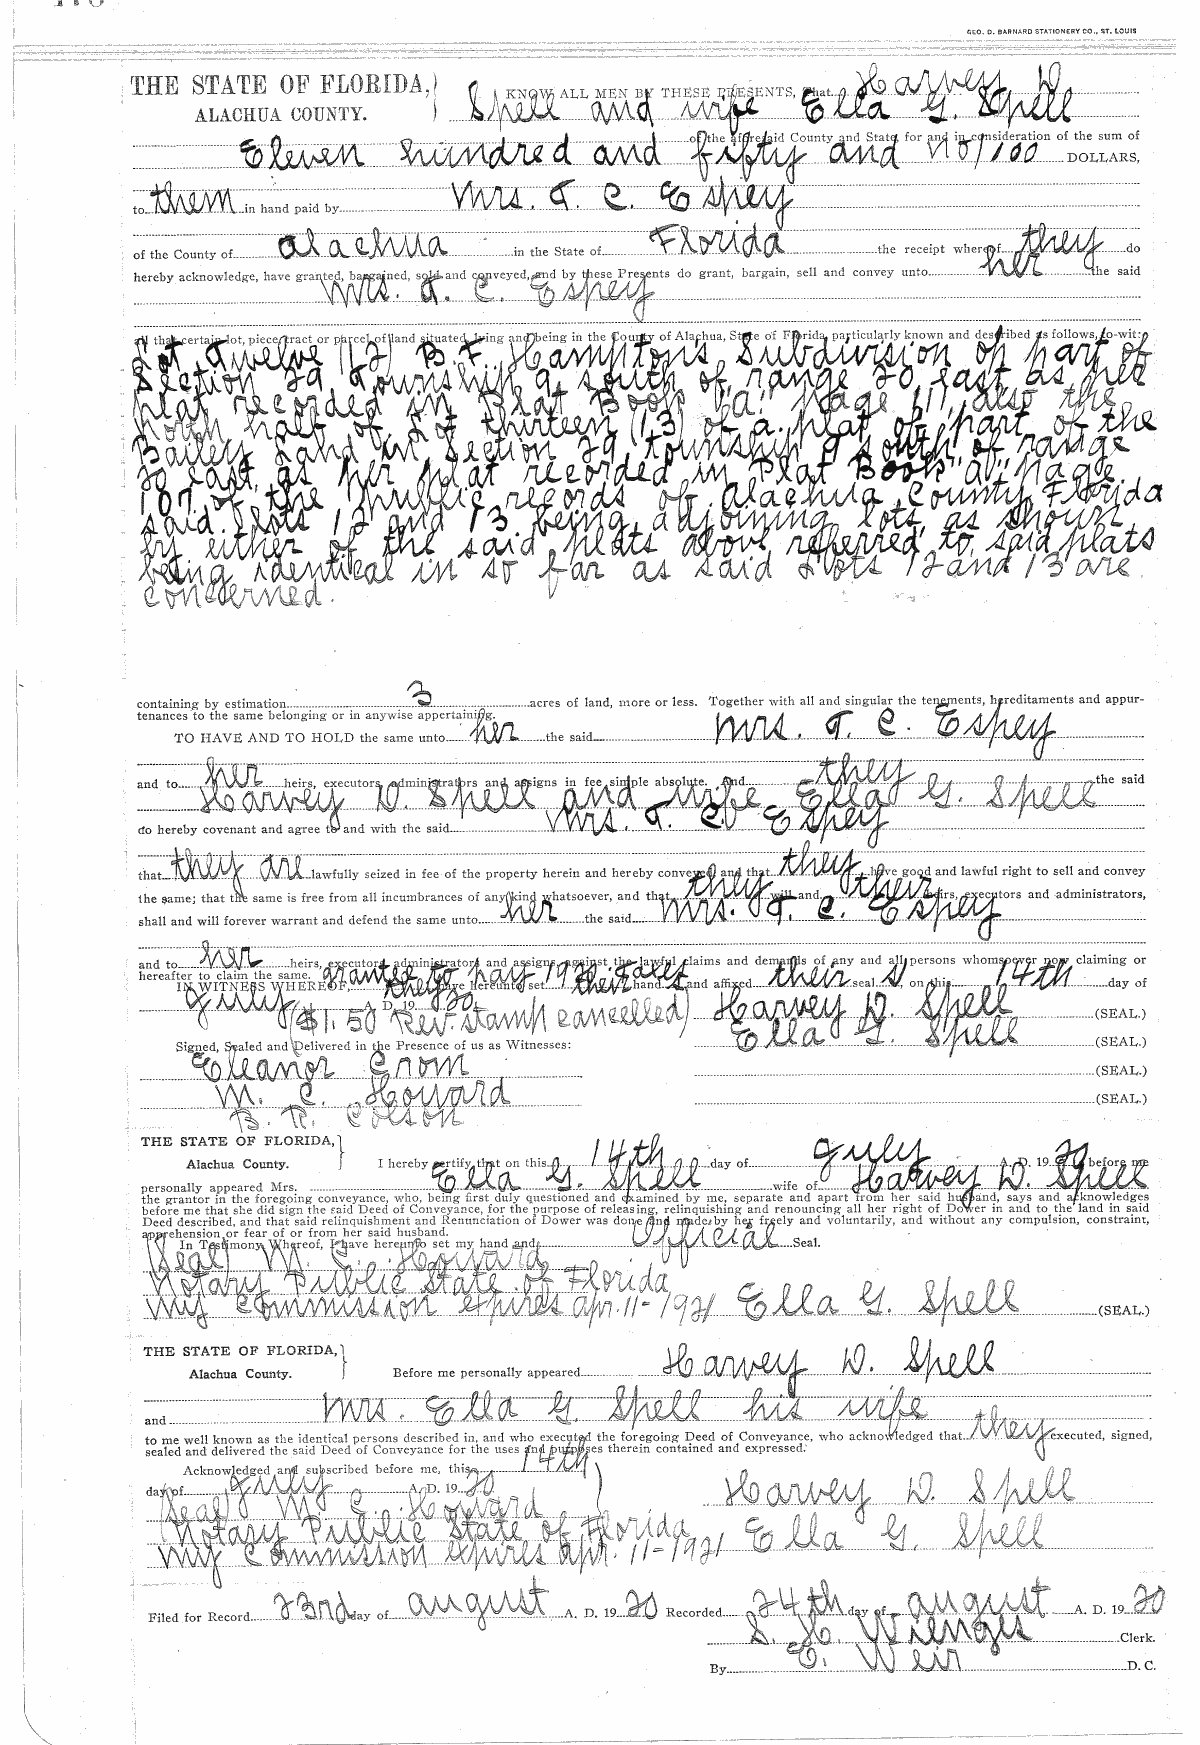 GEO. D. BARNARD STATIONERY CO., ST. LOUIS
THE STATE OF FLORIDA,
KNOW ALL MEN BY THESE PRESENTS, that Harvey D.
ALACHUA COUNTY.
Spell and wife Ella G. Spell
of the aforesaid County and State, for and in consideration of the sum of
Eleven hundred and fifty and no/100 DOLLARS,
to them in hand paid by Mrs. T. C. Espey
of the County of Alachua in the State of Florida the receipt whereof they do
hereby acknowledge, have granted, bargained, sold and conveyed, and by these Presents do grant, bargain, sell and convey unto her the said
Mrs. T. C. Espey
all that certain lot, piece, tract or parcel of land situated, lying and being in the County of Alachua, State of Florida, particularly known and described as follows, to-wit:
Lot Twelve (12) B. F. Hampton's Subdivision of part of
Section 29, Township 9, south of range 20 east as per
plat recorded in Plat Book "a" page 11, also the
north half of Lot thirteen (13) of a plat of part of the
Bailey Land in Section 29 township 9 south of range
20 east, as per plat recorded in Plat Book "a" page
107 of the public records of Alachua County, Florida
said Lots 12 and 13 being adjoining lots as shown
by either of the said plats above referred to, said plats
being identical in so far as said Lots 12 and 13 are
concerned.
containing by estimation 3 acres of land, more or less. Together with all and singular the tenements, hereditaments and appur-
tenances to the same belonging or in anywise appertaining.
TO HAVE AND TO HOLD the same unto her the said Mrs. T. C. Espey
and to her heirs, executors, administrators and assigns in fee simple absolute. And they the said
Harvey D. Spell and wife Ella G. Spell
do hereby covenant and agree to and with the said Mrs. T. C. Espey
that they are lawfully seized in fee of the property herein and hereby conveyed and that they have good and lawful right to sell and convey
the same; that the same is free from all incumbrances of any kind whatsoever, and that they will and their heirs, executors and administrators,
shall and will forever warrant and defend the same unto her the said Mrs. T. C. Espey
and to her heirs, executors, administrators and assigns, against the lawful claims and demands of any and all persons whomsoever now claiming or
hereafter to claim the same. grantee to pay 1920 taxes
IN WITNESS WHEREOF, they have hereunto set their hands and affixed their seal s on this 14th day of
July A. D. 19 20 Harvey D. Spell (SEAL.)
($1.50 Rev. stamp cancelled)
Ella G. Spell (SEAL.)
Signed, Sealed and Delivered in the Presence of us as Witnesses:
Eleanor Crom (SEAL.)
M. C. Howard (SEAL.)
B. R. Colson
THE STATE OF FLORIDA,
Alachua County.
I hereby certify that on this 14th day of July A. D. 19 20 before me
personally appeared Mrs. Ella G. Spell wife of Harvey D. Spell
the grantor in the foregoing conveyance, who, being first duly questioned and examined by me, separate and apart from her said husband, says and acknowledges
before me that she did sign the said Deed of Conveyance, for the purpose of releasing, relinquishing and renouncing all her right of Dower in and to the land in said
Deed described, and that said relinquishment and Renunciation of Dower was done and made by her freely and voluntarily, and without any compulsion, constraint,
apprehension or fear of or from her said husband.
In Testimony Whereof, I have hereunto set my hand and Official Seal.
(Seal) M. C. Howard
Notary Public State of Florida
My Commission expires Apr. 11-1921 Ella G. Spell (SEAL.)
THE STATE OF FLORIDA,
Alachua County.
Before me personally appeared Harvey D. Spell
and Mrs. Ella G. Spell his wife
to me well known as the identical persons described in, and who executed the foregoing Deed of Conveyance, who acknowledged that they executed, signed,
sealed and delivered the said Deed of Conveyance for the uses and purposes therein contained and expressed.
Acknowledged and subscribed before me, this 14th
day of July A. D. 19 20
Harvey D. Spell
(Seal) M. C. Howard
Notary Public State of Florida
Ella G. Spell
My Commission expires Apr. 11-1921
Filed for Record 23rd day of August A. D. 19 20 Recorded 24th day of August A. D. 19 20
S. H. Wienges Clerk.
By E. Weir D. C.